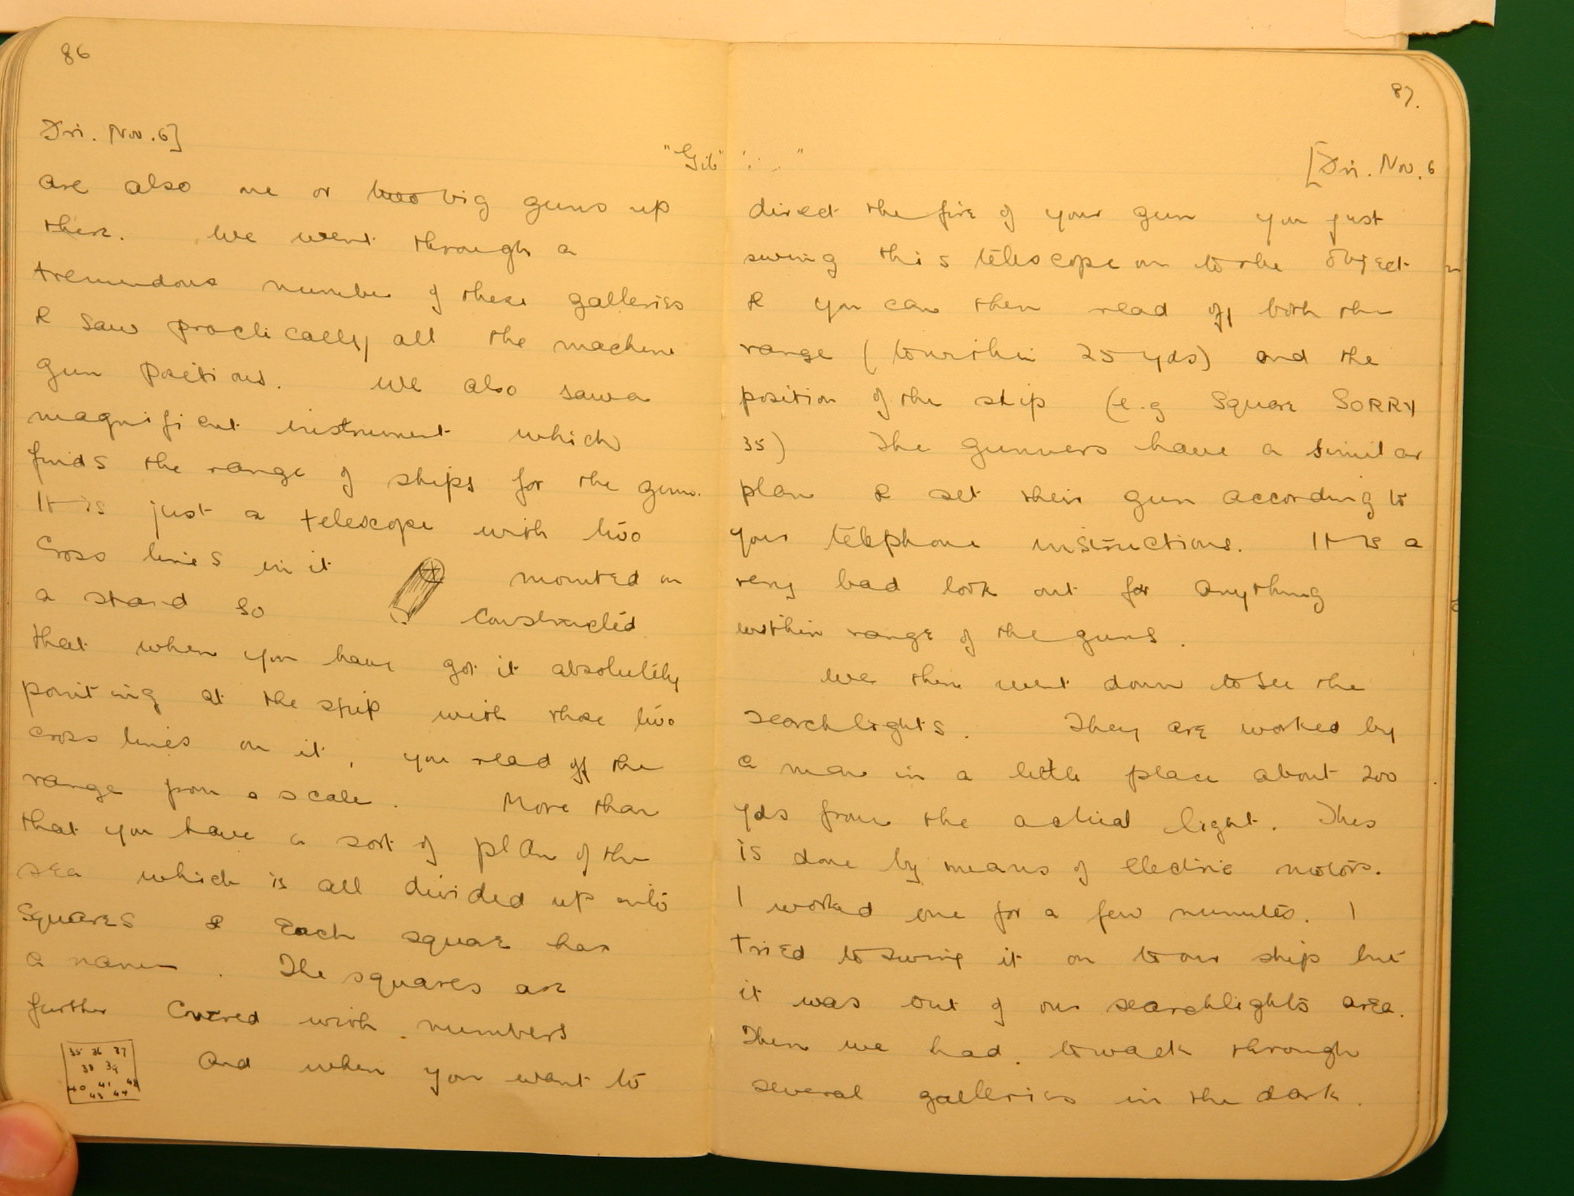 86
Fri. Nov. 6]
"Gib"
are also one or two big guns up
there. We went through a
tremendous number of these galleries
& saw practically all the machine
gun positions. We also saw a
magnificent instrument which
finds the range of ships for the guns.
It is just a telescope with two
cross lines in it mounted on
a stand so constructed
that when you have got it absolutely
pointing at the ship with those two
cross lines on it, you read off the
range from a scale. More than
that you have a sort of plan of the
sea which is all divided up into
squares & each square has
a name. The squares are
further covered with numbers
35 36 37
38 39
40 41 42
43 44
and when you want to
87.
[Fri. Nov. 6
direct the fire of your gun you just
swing this telescope on to the object
& you can then read off both the
range (to within 25 yds) and the
position of the ship (e.g Square SORRY
35) The gunners have a similar
plan & set their gun according to
your telephone instructions. It is a
very bad look out for anything
within range of the guns.
We then went down to see the
searchlights. They are worked by
a man in a little place about 200
yds from the actual light. This
is done by means of electric motors.
I worked one for a few minutes. I
tried to swing it on to our ship but
it was out of our searchlights area.
Then we had to walk through
several galleries in the dark.